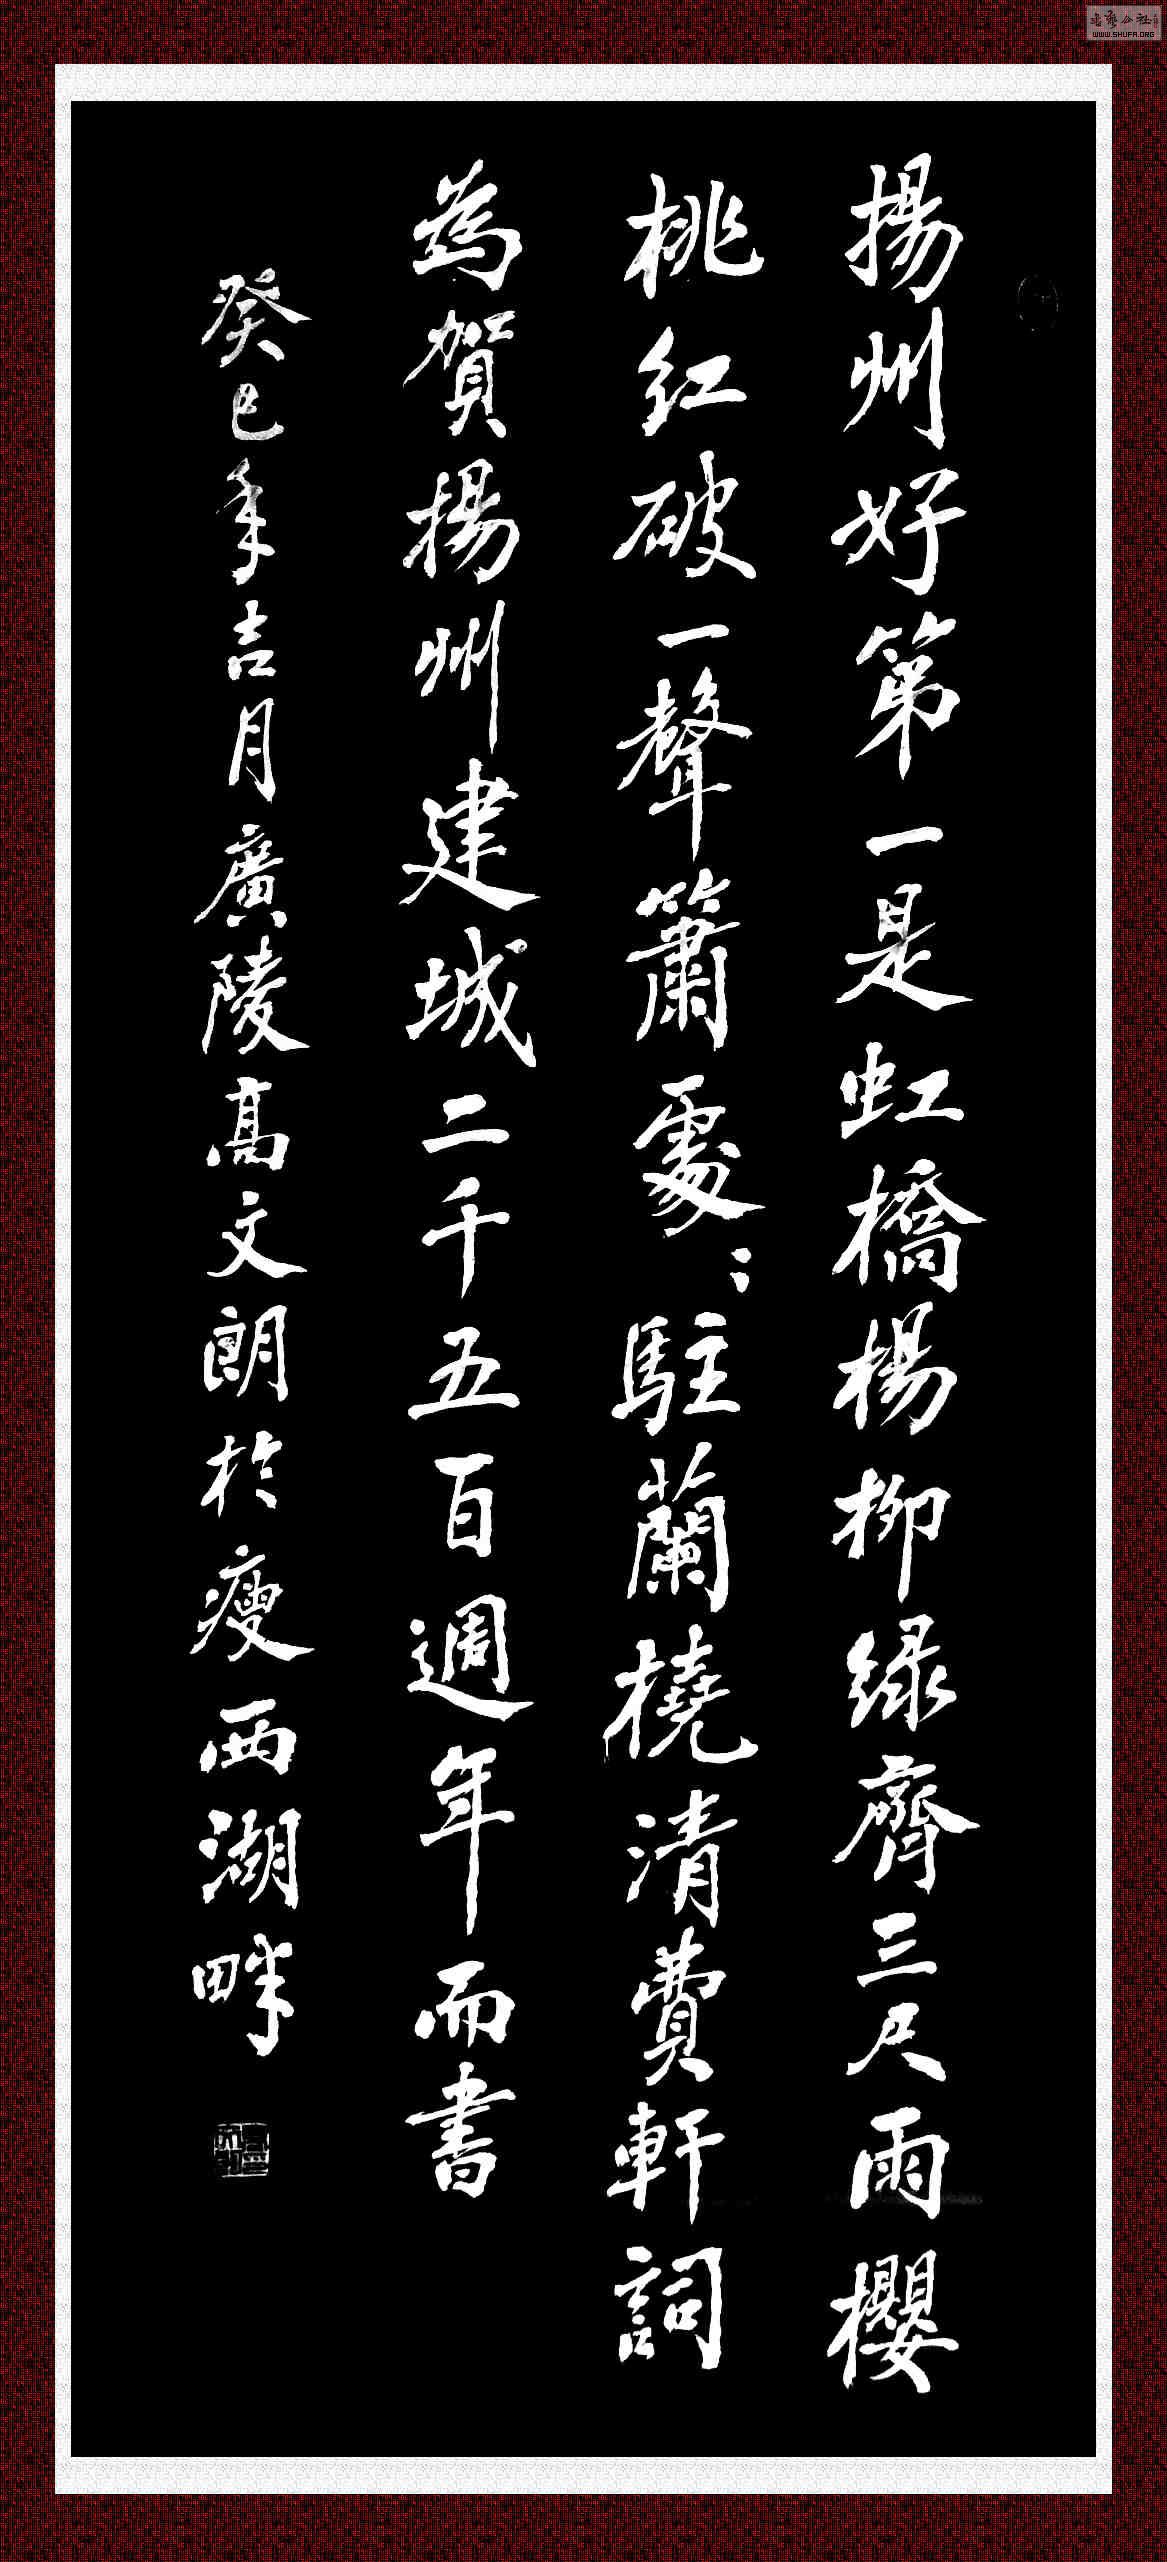 揚州好第一是虹橋楊柳綠齊三尺雨櫻
桃紅破一聲簫處：駐蘭橈清費軒詞
為賀揚州建城二千五百週年而書
癸巳年吉月廣陵高文朗於瘦西湖畔
WWW.SHUFA.ORG